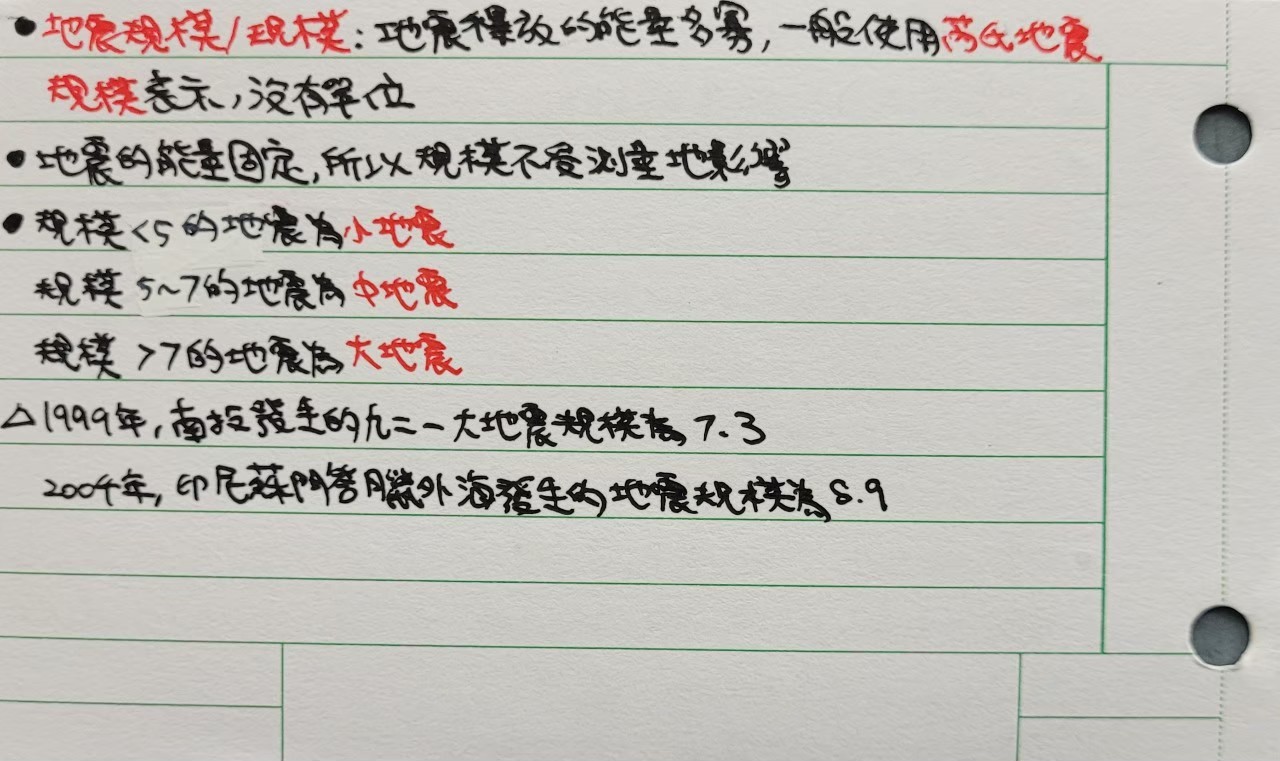 ● 地震規模/規模:地震釋放的能量多寡,一般使用芮氏地震
規模表示,沒有單位
● 地震的能量固定,所以規模不受測量地影響
● 規模<5的地震為小地震
規模5~7的地震為中地震
規模>7的地震為大地震
△1999年,南投發生的九二一大地震規模為7.3
2004年,印尼蘇門答臘外海發生的地震規模為8.9